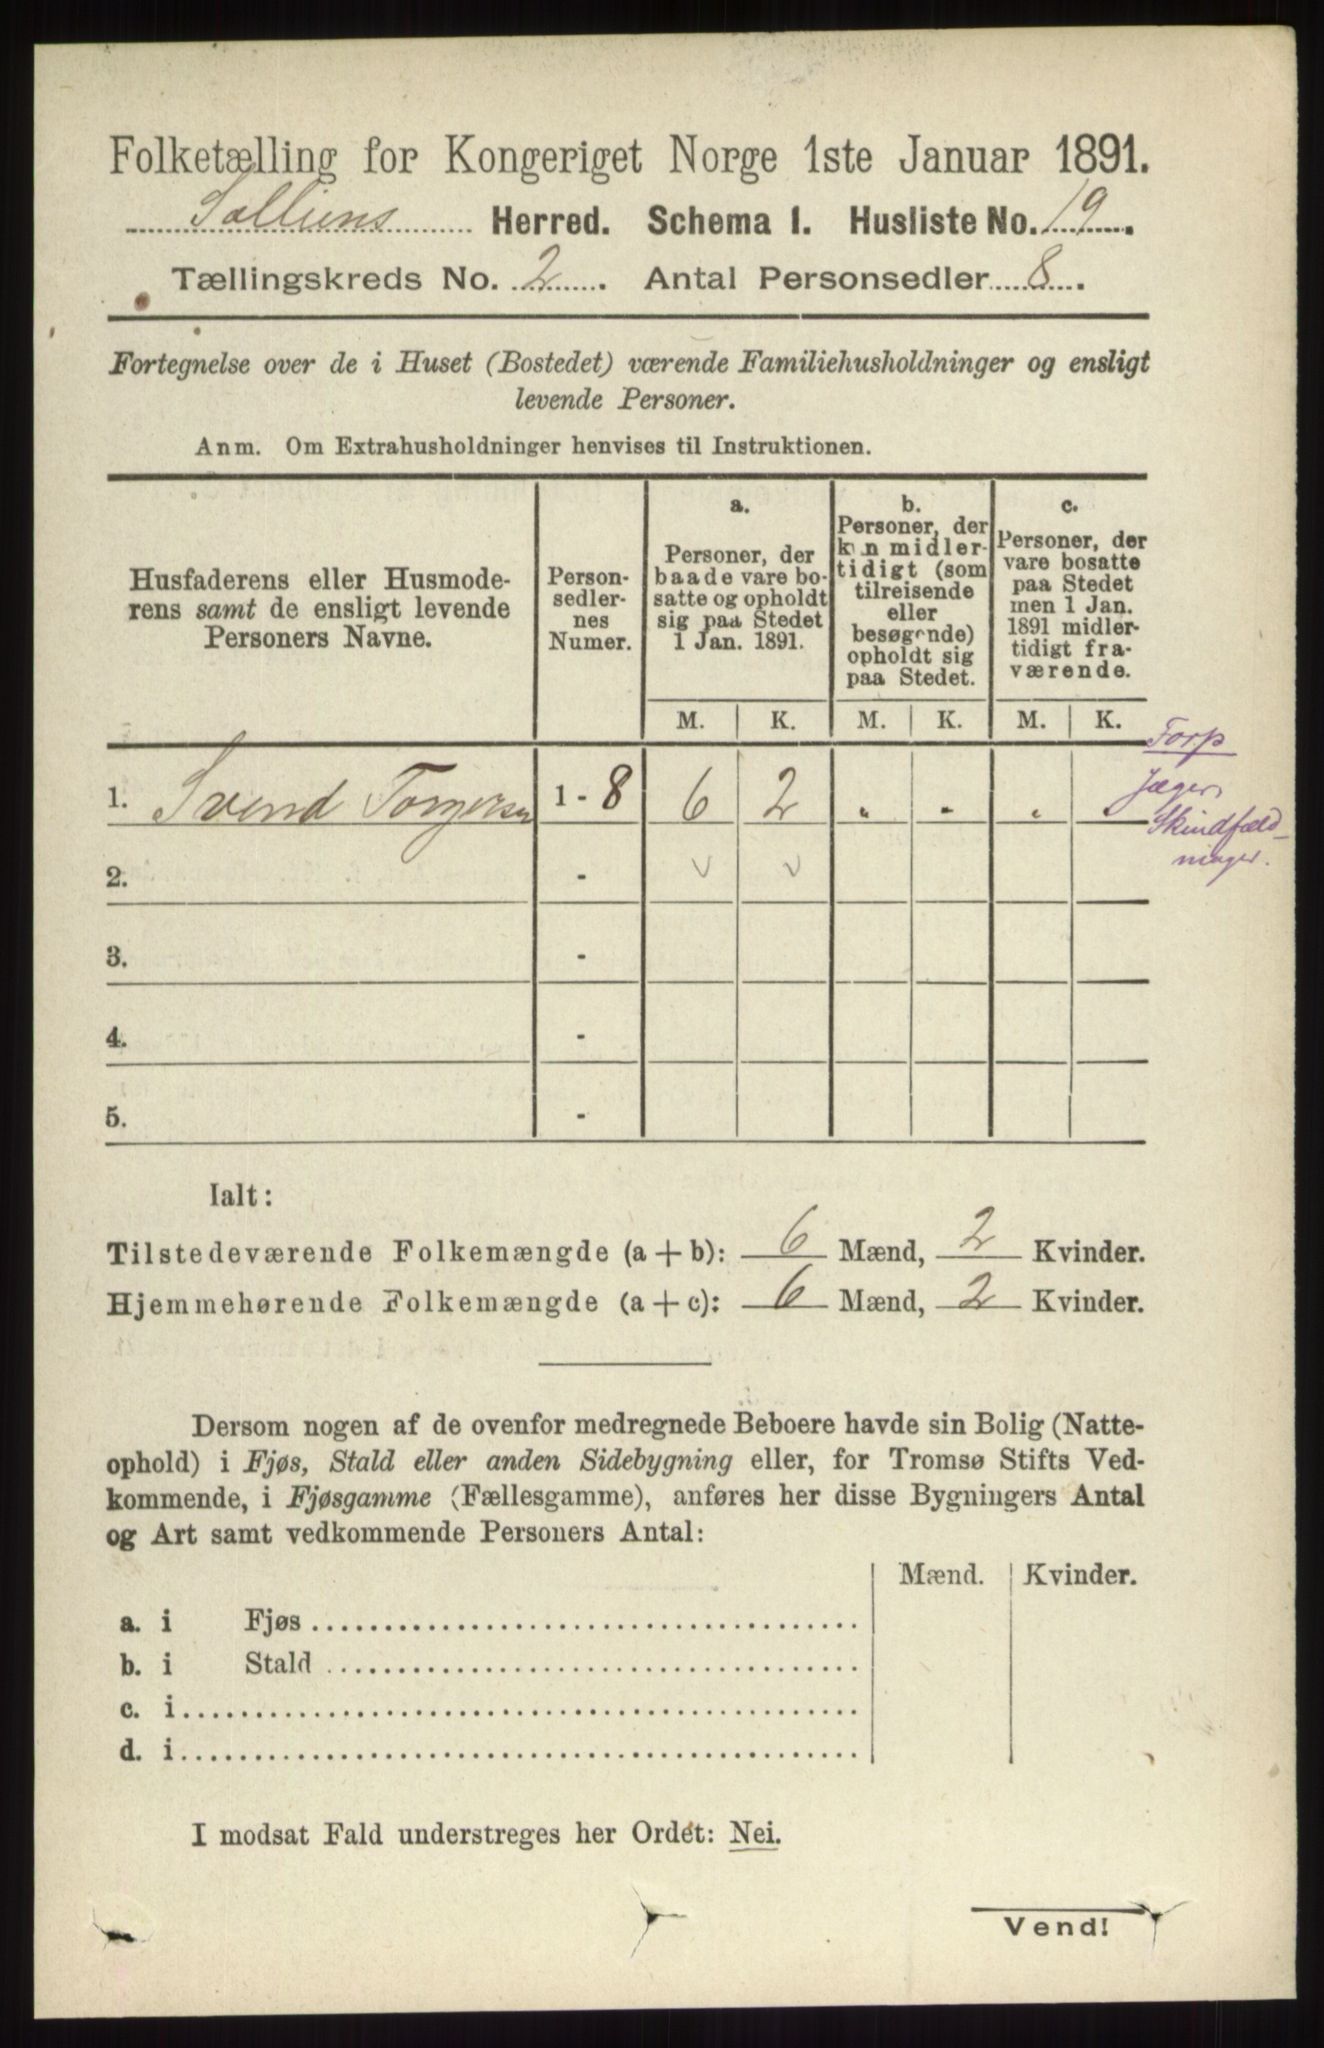 Folketælling for Kongeriget Norge 1ste Januar 1891.
Solliens Herred. Schema 1. Husliste No. 19.
Tællingskreds No. 2. Antal Personsedler 8.
Fortegnelse over de i Huset (Bostedet) værende Familiehusholdninger og ensligt
levende Personer.
Anm. Om Extrahusholdninger henvises til Instruktionen.
Husfaderens eller Husmode-
rens samt de ensligt levende
Personers Navne.
Person-
sedler-
nes
Numer.
a.
Personer, der
baade vare bo-
satte og opholdt
sig paa Stedet
1 Jan. 1891.
b.
Personer, der
kun midler-
tidigt (som
tilreisende
eller
besøgende)
opholdt sig
paa Stedet.
c.
Personer, der
vare bosatte
paa Stedet
men 1 Jan.
1891 midler-
tidigt fra-
værende.
M. K. M. K. M. K.
Torp
1. Svend Torgersen 1 - 8 6 2 „ - „ -
Jæger,
Skindfæld-
mager.
2. - v v
3. -
4. -
5. -
Ialt:
Tilstedeværende Folkemængde (a + b): 6 Mænd, 2 Kvinder.
Hjemmehørende Folkemængde (a + c): 6 Mænd, 2 Kvinder.
Dersom nogen af de ovenfor medregnede Beboere havde sin Bolig (Natte-
ophold) i Fjøs, Stald eller anden Sidebygning eller, for Tromsø Stifts Ved-
kommende, i Fjøsgamme (Fællesgamme), anføres her disse Bygningers Antal
og Art samt vedkommende Personers Antal:
Mænd. Kvinder.
a. i Fjøs
b. i Stald
c. i
d. i
I modsat Fald understreges her Ordet: Nei.
Vend!